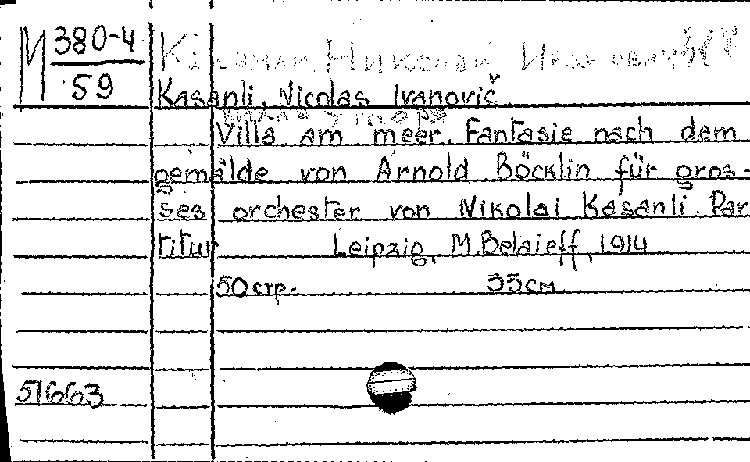 М 380-4
59
Николай
Kasanli, Nicolas Ivanovič
Villa am meer. Fantasie nach dem
gemälde von Arnold Böcklin für gros-
ses orchester von Nikolai Kasanli. Par
titur Leipzig, M. Belaieff, 1914
50 стр. 35 см
51663